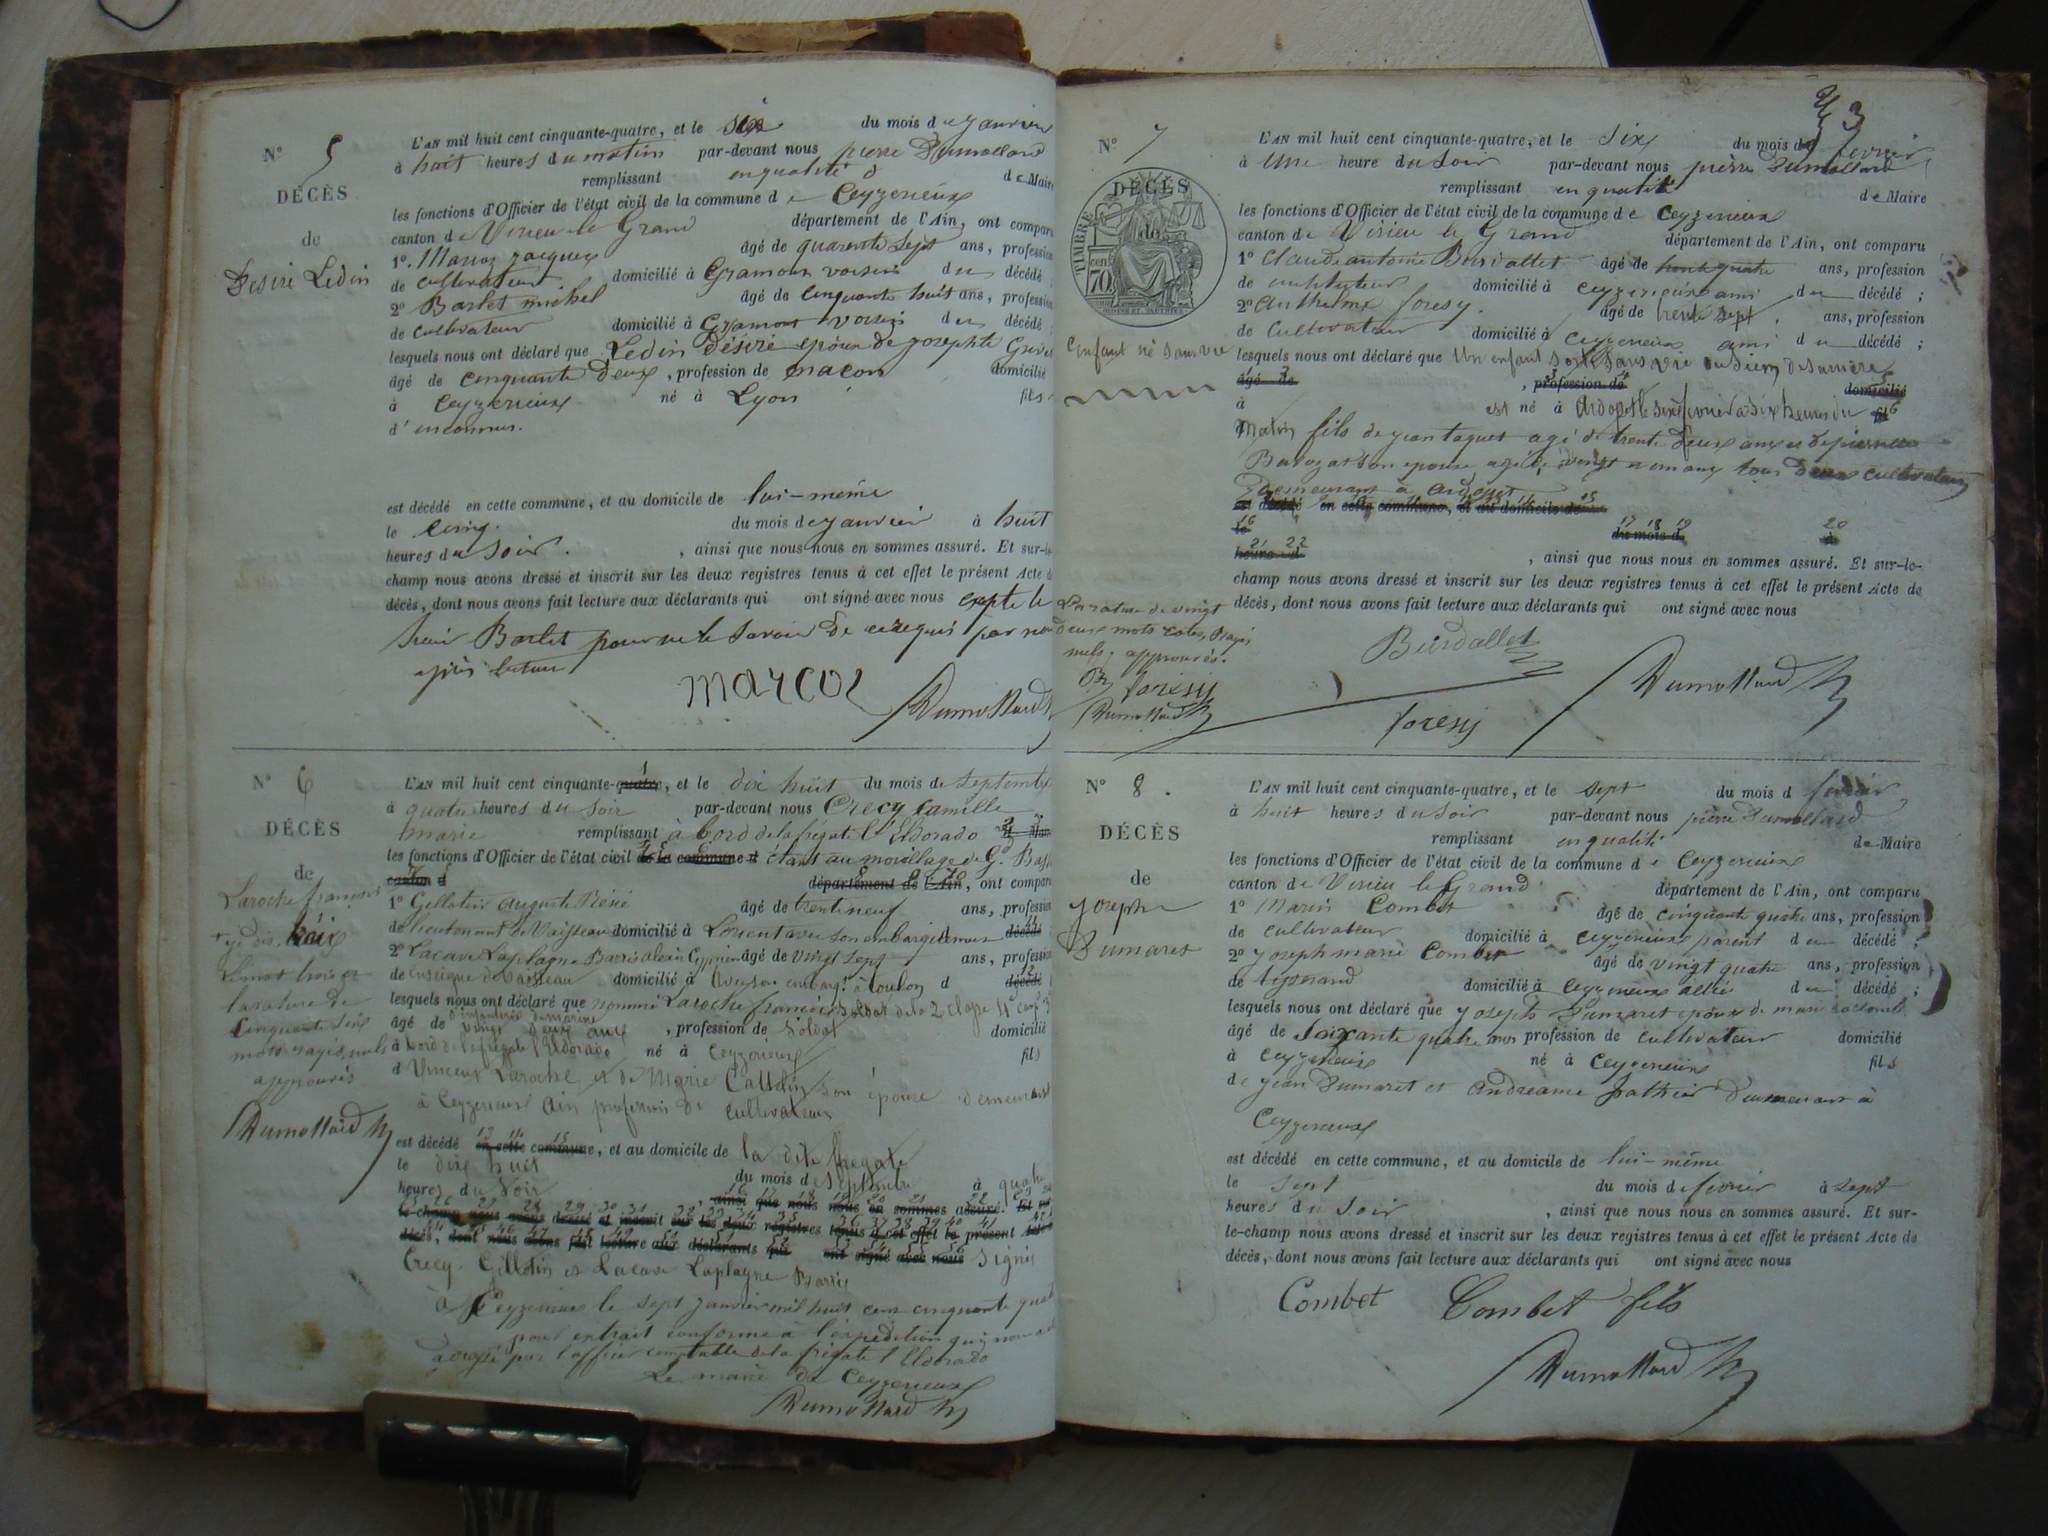 N° 5
DÉCÈS
de
Desiré Ledin
L'AN mil huit cent cinquante-quatre, et le six du mois de janvier
à huit heures du matin par-devant nous pierre Dumollard
remplissant en qualité d de Maire
les fonctions d'Officier de l'état civil de la commune de Ceyzerieux
canton de Virieu le Grand département de l'Ain, ont comparu
1°. Marcoz jacques âgé de quarente sept ans, profession
de cultivateur domicilié à Gramont voisin du décédé ;
2° Barlet michel âgé de cinquante huit ans, profession
de cultivateur domicilié à Gramont voisin du décédé ;
lesquels nous ont déclaré que Ledin désiré époux de josephte
âgé de cinquante deux, profession de macon domicilié
à Ceyzerieux né à Lyon fils
d'inconnus.
est décédé en cette commune, et au domicile de lui-même
le cinq du mois de janvier à huit
heures du soir. , ainsi que nous nous en sommes assuré. Et sur-le-
champ nous avons dressé et inscrit sur les deux registres tenus à cet effet le présent Acte de
décès, dont nous avons fait lecture aux déclarants qui ont signé avec nous excepté le
sieur Barlet pour ne le savoir de ce requis par nous
après lecture
Marcoz
Dumollard
N° 6
DÉCÈS
de
Laroche françois
L'AN mil huit cent cinquante-quatre, et le dix huit du mois de septembre
à quatre heures du soir par-devant nous Crecy Camille
marie remplissant à bord de la frégate l'Eldorado
les fonctions d'Officier de l'état civil de la commune d étant au mouillage de
canton d département de l'Ain, ont comparu
1° Gillotin auguste Réné âgé de trente neuf ans, profession
de lieutenant de Vaisseau domicilié à Lorient décédé
2° Lacave Laplagne Barris âgé de vingt sept ans, profession
de enseigne de vaisseau domicilié à toulon d décédé
lesquels nous ont déclaré que nommé Laroche françois soldat de la 2 classe
d'infanterie de marine
âgé de vingt deux ans, profession de soldat domicilié
à bord de la frégate l'Eldorado né à Ceyzerieux fils
d Vincent Laroche et de Marie son épouse demeurant
à Ceyzerieux Ain profession de cultivateurs
est décédé en cette commune, et au domicile de la dite fregate
le dix huit du mois de septembre à quatre
heures du soir , ainsi que nous nous en sommes assuré. Et sur-
le-champ nous avons dressé et inscrit sur les deux registres tenus à cet effet le présent Acte
décès, dont nous avons fait lecture aux déclarants qui ont signé avec nous signé
Crecy. Gillotin et Lacave Laplagne Barris
à Ceyzerieux le sept janvier mil huit cent cinquante quatre
pour extrait conforme à l'expédition qui nous a été
par l'officier comptable de la frégate l'Eldorado
Le maire de Ceyzerieux
Dumollard
rature de
cinquante six
mots rayés nuls
approuvés
Dumollard
3
N° 7
DÉCÈS
de
TIMBRE
70
enfant né sans vie
L'AN mil huit cent cinquante-quatre, et le six du mois de fevrier
à une heure du soir par-devant nous pierre Dumollard
remplissant en qualité de Maire
les fonctions d'Officier de l'état civil de la commune de Ceyzerieux
canton de Virieu le Grand département de l'Ain, ont comparu
1° Claude antoine Burdallet âgé de trente quatre ans, profession
de domicilié à Ceyzerieux ami du décédé ;
2° Anthelme foresy âgé de trente sept ans, profession
de Cultivateur domicilié à Ceyzerieux ami du décédé ;
lesquels nous ont déclaré que Un enfant sorti sans vie du sein de sa mère
âgé de , profession de domicilié
à est né à le six fevrier à six heures du fils
matin fils de jean taquet agé de trente deux ans et de
son epouse agée de vingt ans tous deux cultivateurs
demeurant à
est décédé en cette commune, et au domicile de
le du mois d à
heures d , ainsi que nous nous en sommes assuré. Et sur-le-
champ nous avons dressé et inscrit sur les deux registres tenus à cet effet le présent Acte de
décès, dont nous avons fait lecture aux déclarants qui ont signé avec nous
La rature de vingt
deux mots rayés
nuls, approuvés.
foresy
Dumollard
Burdallet
foresy
Dumollard
N° 8.
DÉCÈS
de
joseph
Dumaret
L'AN mil huit cent cinquante-quatre, et le sept du mois d fevrier
à huit heures du soir par-devant nous pierre Dumollard
remplissant en qualité de Maire
les fonctions d'Officier de l'état civil de la commune de Ceyzerieux
canton de Virieu le Grand département de l'Ain, ont comparu
1° Marin Combet âgé de cinquante quatre ans, profession
de cultivateur domicilié à Ceyzerieux parent du décédé ;
2° joseph marie Combet âgé de vingt quatre ans, profession
de tisserand domicilié à Ceyzerieux allié du décédé ;
lesquels nous ont déclaré que joseph Dumaret époux de marie
âgé de soixante quatre ans profession de cultivateur domicilié
à Ceyzerieux né à Ceyzerieux fils
de jean Dumaret et andreanne demeurant à
Ceyzerieux
est décédé en cette commune, et au domicile de lui-même
le sept du mois de fevrier à sept
heures du soir , ainsi que nous nous en sommes assuré. Et sur-
le-champ nous avons dressé et inscrit sur les deux registres tenus à cet effet le présent Acte de
décès, dont nous avons fait lecture aux déclarants qui ont signé avec nous
Combet Combet fils
Dumollard